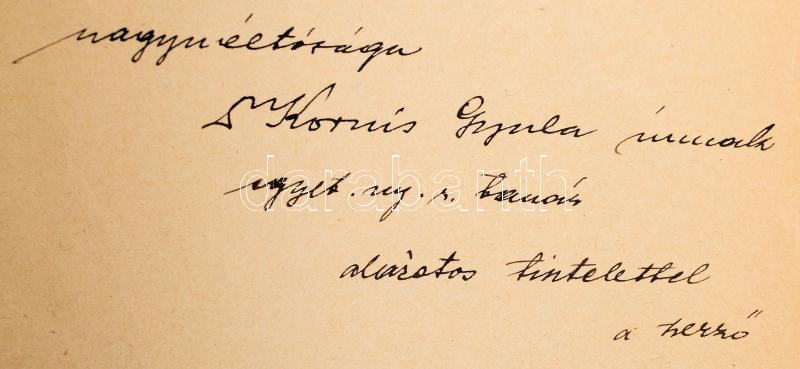 nagyméltóságu
Dr Kornis Gyula úrnak
egyet. ny. r. tanár
darabanth
alázatos tisztelettel
a szerző